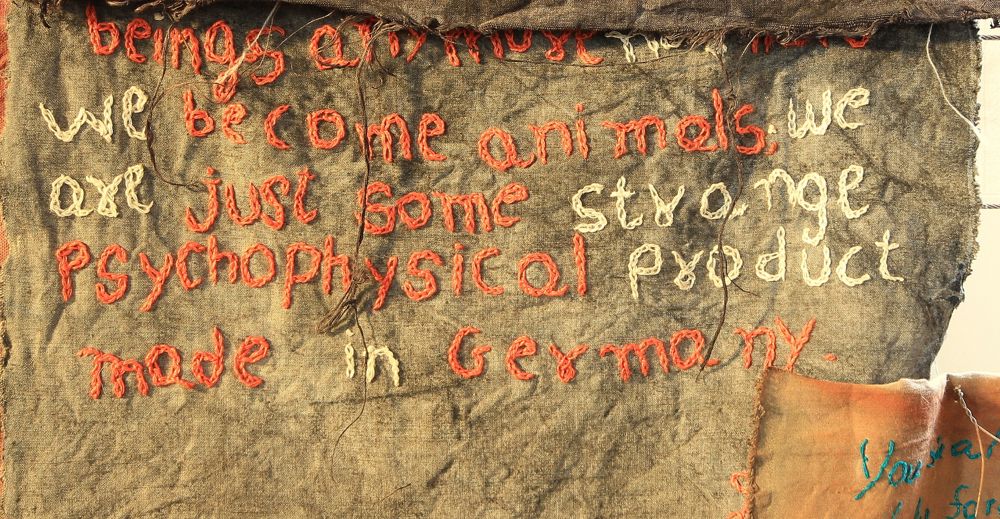 beings anymore
we become animals, we
are just some strange
psychophysical product
made in Germany.
You